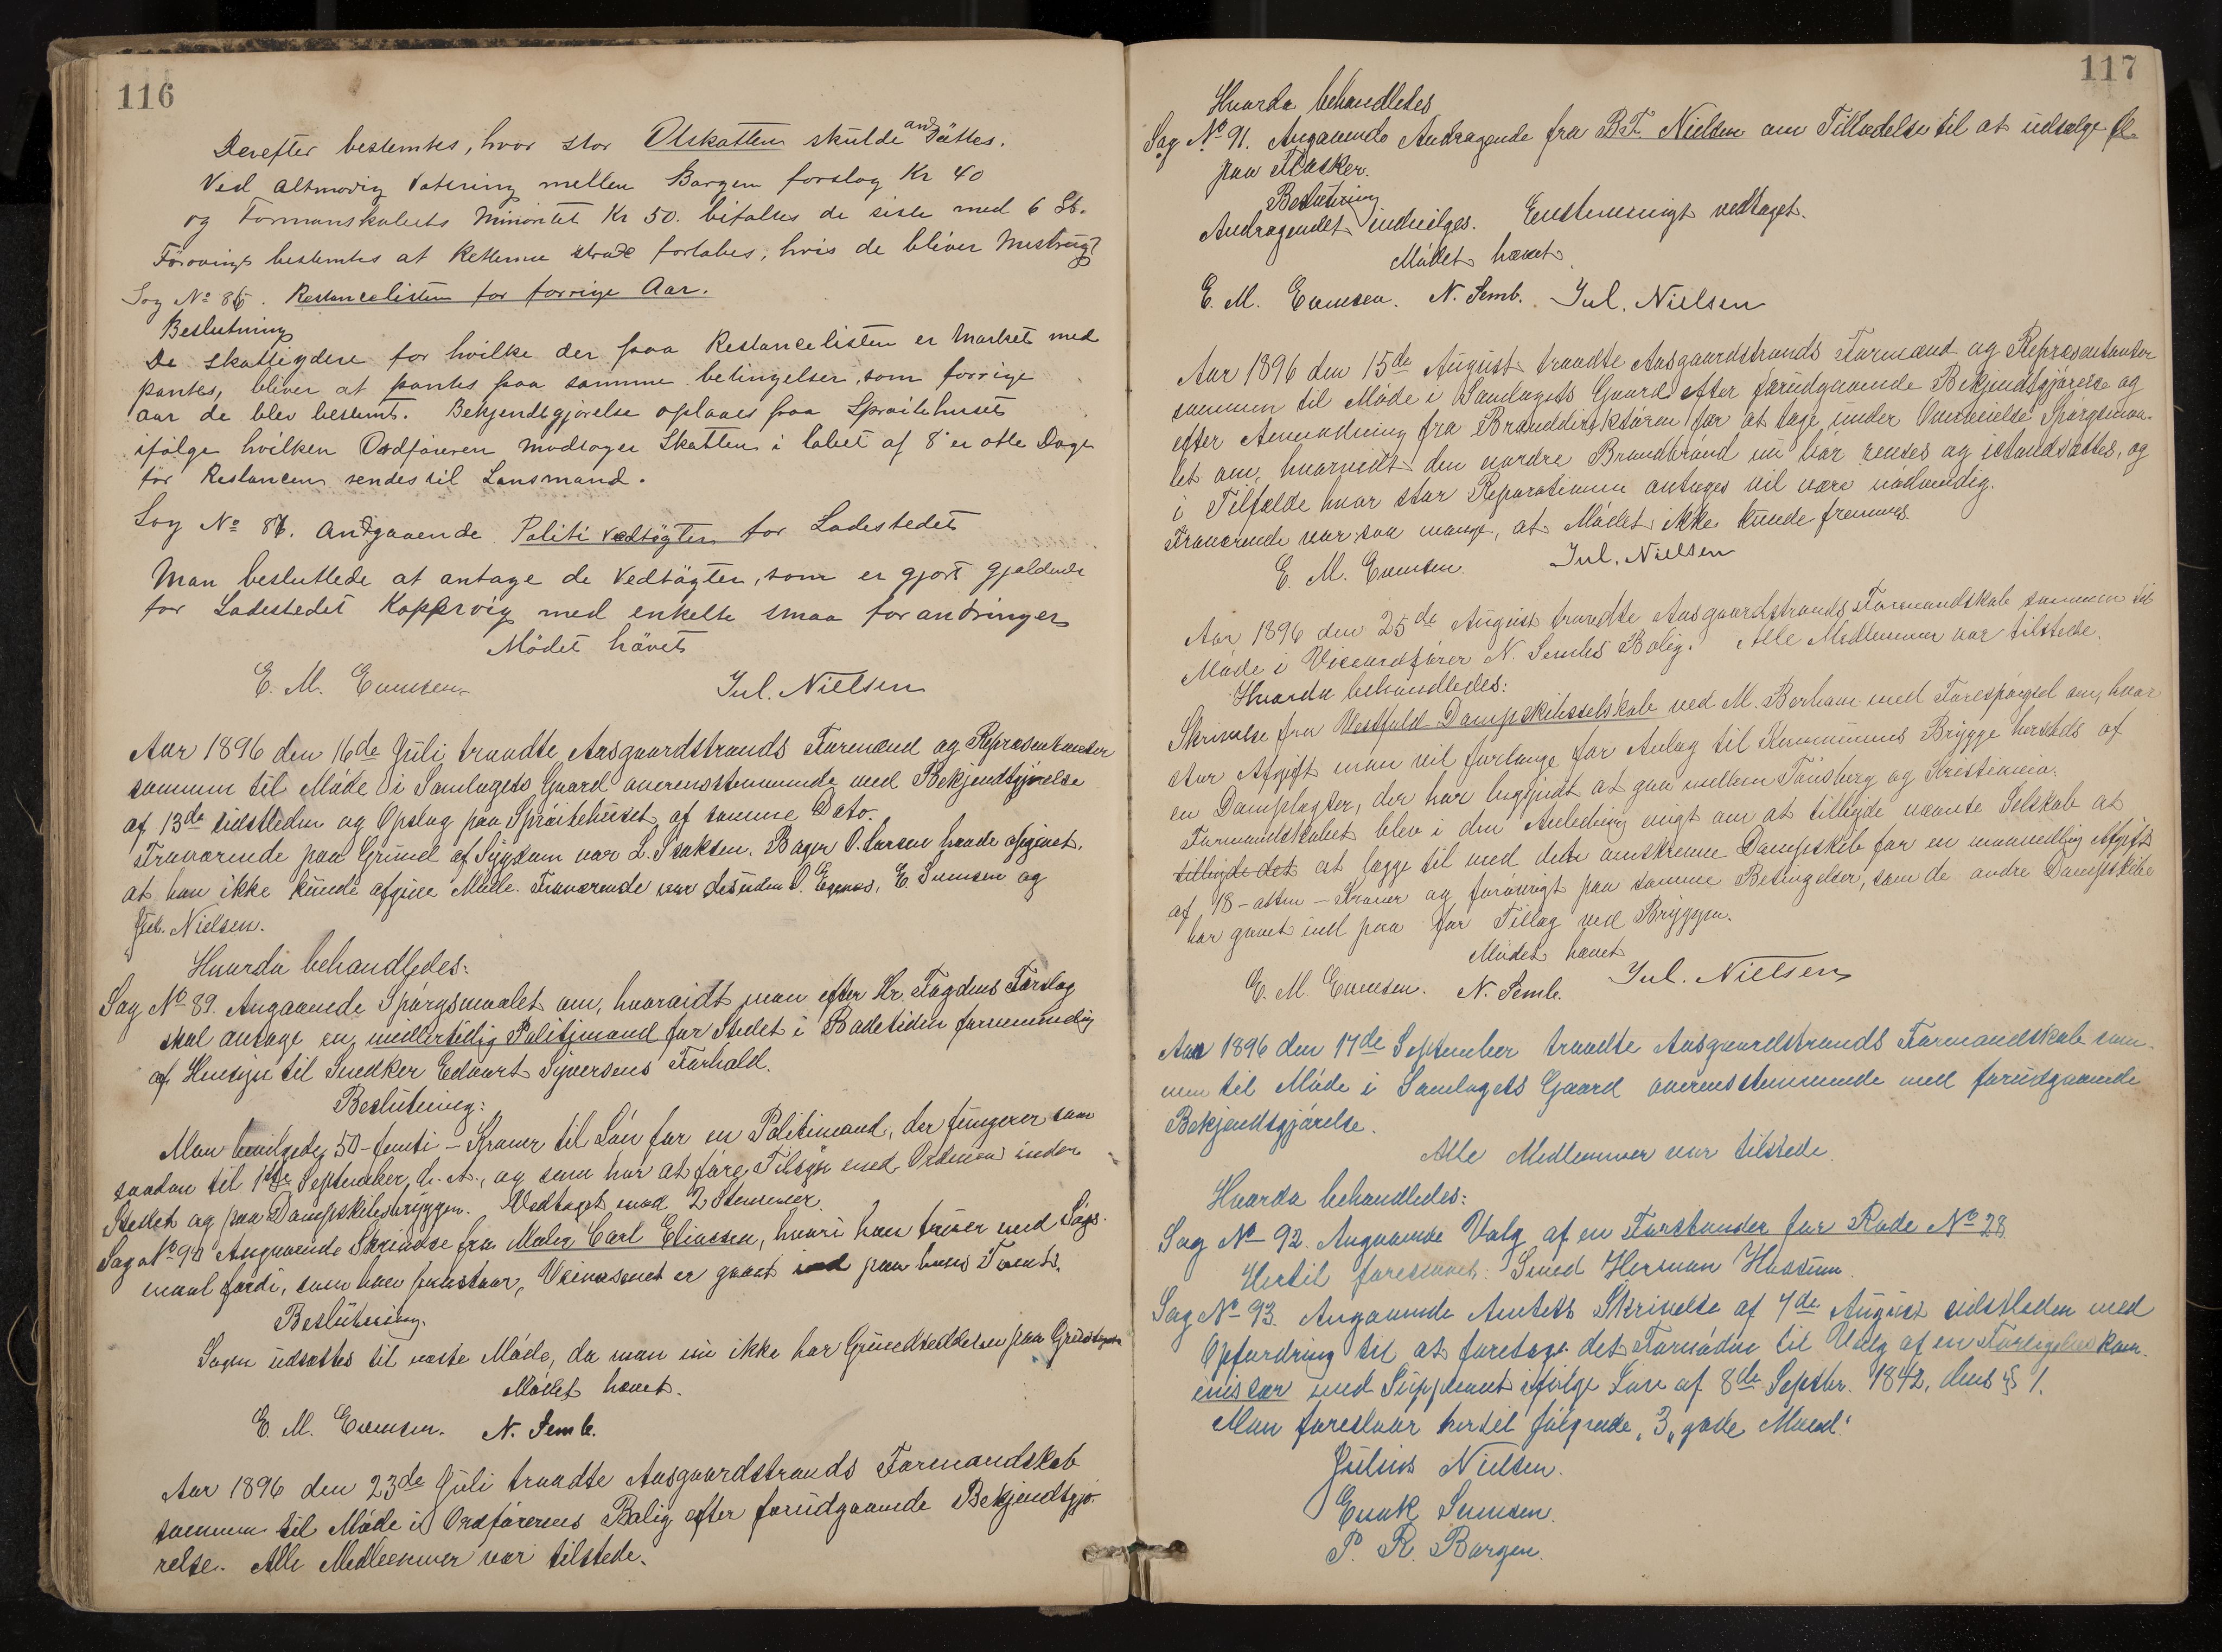 116
Derefter bestemtes, hvor stor Ølskatten skulde andsættes.
Ved altmodig Votering mellem Borgen forslag Kr 40
og Formanskabets Minoritet Kr 50. bifaltes de siste med 6 St.
Førovrigt bestemtes at Retterne strax forlabes, hvis de bliver
Sag No 85. Restancelisten for forrige Aar.
Beslutning
De skatteydere for hvilke der paa Restancelisten er Market med
pantes, bliver at pantes paa samme betingelser, som forrige
aar de blev bestemt. Bekjendtgjørelse oplaaes paa Sprøitehuset
ifølge hvilken Ordføreren modtager Skatten i løbet af 8 er otte Dage
før Restancen sendes til Lensmand.
Sag No 86. Andgaaende Politi vedtægter for Ladestedet
Man besluttede at antage de Vedtægter, som er gjort gjeldende
for Ladestedet Koppervig med enkelte smaa forandringer
Mødet hævet
E. M. Evensen Jul. Nielsen
Aar 1896 den 16de Juli traadte Aasgaardstrands Formænd og Repræsentanter
sammen til Møde i Samlagets Gaard overensstemmende med Bekjendtgjørelse
af 13de sidstleden og Opslag paa Sprøitehuset af samme Dato.
Fraværende paa Grund af Sygdom var L. Isaksen. Bager O. Larsen havde opgivet,
at han ikke kunde afgive Møde. Fraværende var desuden O. Egenes, E. Svensen og
Jul. Nielsen.
Hvorda behandledes:
Sag No 89. Angaaende Spørgsmaalet om, hvorvidt man efter Hr. Fogdens Forslag
skal antage en midlertidig Politimand for Stedet i Badetiden fornemmelig
af Hensyn til Snedker Edvart Syversens Forhold.
Beslutning:
Man bevilgede 50 - femti - Kroner til Løn for en Politimand, der fungerer som
saadan til 1ste September d. A., og som har at føre Tilsyn med Ordenen inden
Stedet og paa Dampskibsbryggen. Vedtaget med 2 Stemmer.
Sag No 90 Angaaende Skrivelse fra Maler Carl Eliassen, hvori han truer med Søgs-
maal fordi, som han paastaar, Veivæsenet er gaaet ind paa hans Tomt.
Beslutning.
Sagen udsættes til næste Møde, da man nu ikke har Grundseddelen paa
Mødet hævet.
E. M. Evensen. N. Semb.
Aar 1896 den 23de Juli traadte Aasgaardstrands Formandskab
sammen til Møde i Ordførerens Bolig efter forudgaaende Bekjendtgjø-
relse. Alle Medlemmer var tilstede.
117
Hvorda behandledes
Sag No 91. Angaaende Andragende fra B.F. Nielsen om Tilladelse til at udsælge Øl
paa Flasker.
Beslutning
Andragendet indvilges. Enstemmigt vedtaget.
Mødet hævet.
E. M. Evensen. N. Semb. Jul. Nielsen
Aar 1896 den 15de August traadte Aasgaardstrands Formænd og Repræsentanter
sammen til Møde i Samlagets Gaard efter forudgaaende Bekjendtgjørelse og
efter Anmodning fra Branddirektøren for at tage under Overveielse Spørgsmaa-
let om, hvorvidt den nordre Brandbrønd nu bør renses og istandsættes, og
i Tilfælde hvor stor Reparationen antages vil være nødvendig.
Fraværende var saa mange, at Mødet ikke kunde fremmes.
E. M. Evensen. Jul. Nielsen
Aar 1896 den 25de August traadte Aasgaardstrands Formandskab sammen til
Møde i Viceordfører N. Sembs Bolig. Alle Medlemmer var tilstede.
Hvorda behandledes:
Skrivelse fra Vestfold Dampskibsselskab ved M. Borhan med Forespørgsel om, hvor
stor Afgift man vil forlange for Anløg til Kommunens Brygge hersteds af
en Damplægter, der har begyndt at gaa mellem Tønsberg og Kristiania.
Formandskabet blev i den Anledning enigt om at tilbyde nævnte Selskab at
tilbyde det at lægge til med dets omskrevne Dampskib for en maanedlig Afgift
af 18 - atten - Kroner og forøvrigt paa samme Betingelser, som de andre Dampskibe
har gaaet ind paa for Tillæg ved Bryggen.
Mødet hævet
E. M. Evensen. N. Semb. Jul. Nielsen
Aar 1896 den 17de September traadte Aasgaardstrands Formandskab sam-
men til Møde i Samlagets Gaard overensstemmende med forudgaaende
Bekjendtgjørelse.
Alle Medlemmer var tilstede.
Hvorda behandledes:
Sag No 92. Angaaende Valg af en Forstander for Rode No 28
Hertil foresloges: Smed Herman Huasum.
Sag No 93. Angaaende Amtets Skrivelse af 7de August sidstleden med
Opfordring til at foretage det Fornødne til Valg af en Forligelseskom-
missær med Suppleant ifølge Lov af 8de Septbr. 1842, dens § 1.
Man foreslaar hertil følgende "3" gode Mænd:
Julius Nielsen.
Enok Svensen.
P. R. Borgen.